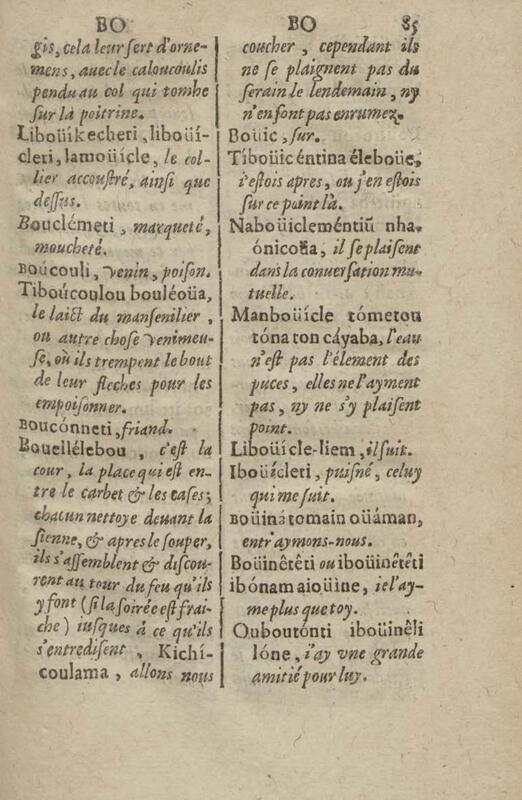 BO
gis, cela leur sert d'orne-
mens, auec le caloucoulis
pendu au col qui tombe
sur la poitrine.
Liboüíkecheri, liboüí-
cleri, lamoüícle, le col-
lier accoustré, ainsi que
dessus.
Bouclémeti, marqueté,
moucheté.
Boúcouli, venin, poison.
Tiboúcoulou bouléoüa,
le laict du mansenilier,
ou autre chose venimeu-
se, où ils trempent le bout
de leur fleches pour les
empoisonner.
Boucónneti, friand.
Bouellélebou, c'est la
cour, la place qui est en-
tre le carbet & les cases;
chacun nettoye deuant la
sienne, & apres le souper,
ils s'assemblent & discou-
rent au tour du feu qu'ils
y font (si la soirée est frai-
che) iusques à ce qu'ils
s'entredisent, Kichí-
coulama, allons nous
BO 85
coucher, cependant ils
ne se plaignent pas du
serain le lendemain, ny
n'en font pas enrumez.
Boüic, sur.
Tíboüic éntina éleboüe,
i'estois apres, ou j'en estois
sur ce point là.
Naboüicleméntiũ nha-
ónicoüa, il se plaisent
dans la conuersation mu-
tuelle.
Manboüícle tómetou
tóna ton cáyaba, l'eau
n'est pas l'élement des
puces, elles ne l'ayment
pas, ny ne s'y plaisent
point.
Liboüícle-liem, il suit.
Iboüícleti, puisné, celuy
qui me suit.
Boüinátomain oüáman,
entr'aymons-nous.
Boüinêtêti ou iboüinêtêti
ibónam aioüine, ie l'ay-
me plus que toy.
Ouboutónti iboüinêli
lóne, i'ay vne grande
amitié pour luy.